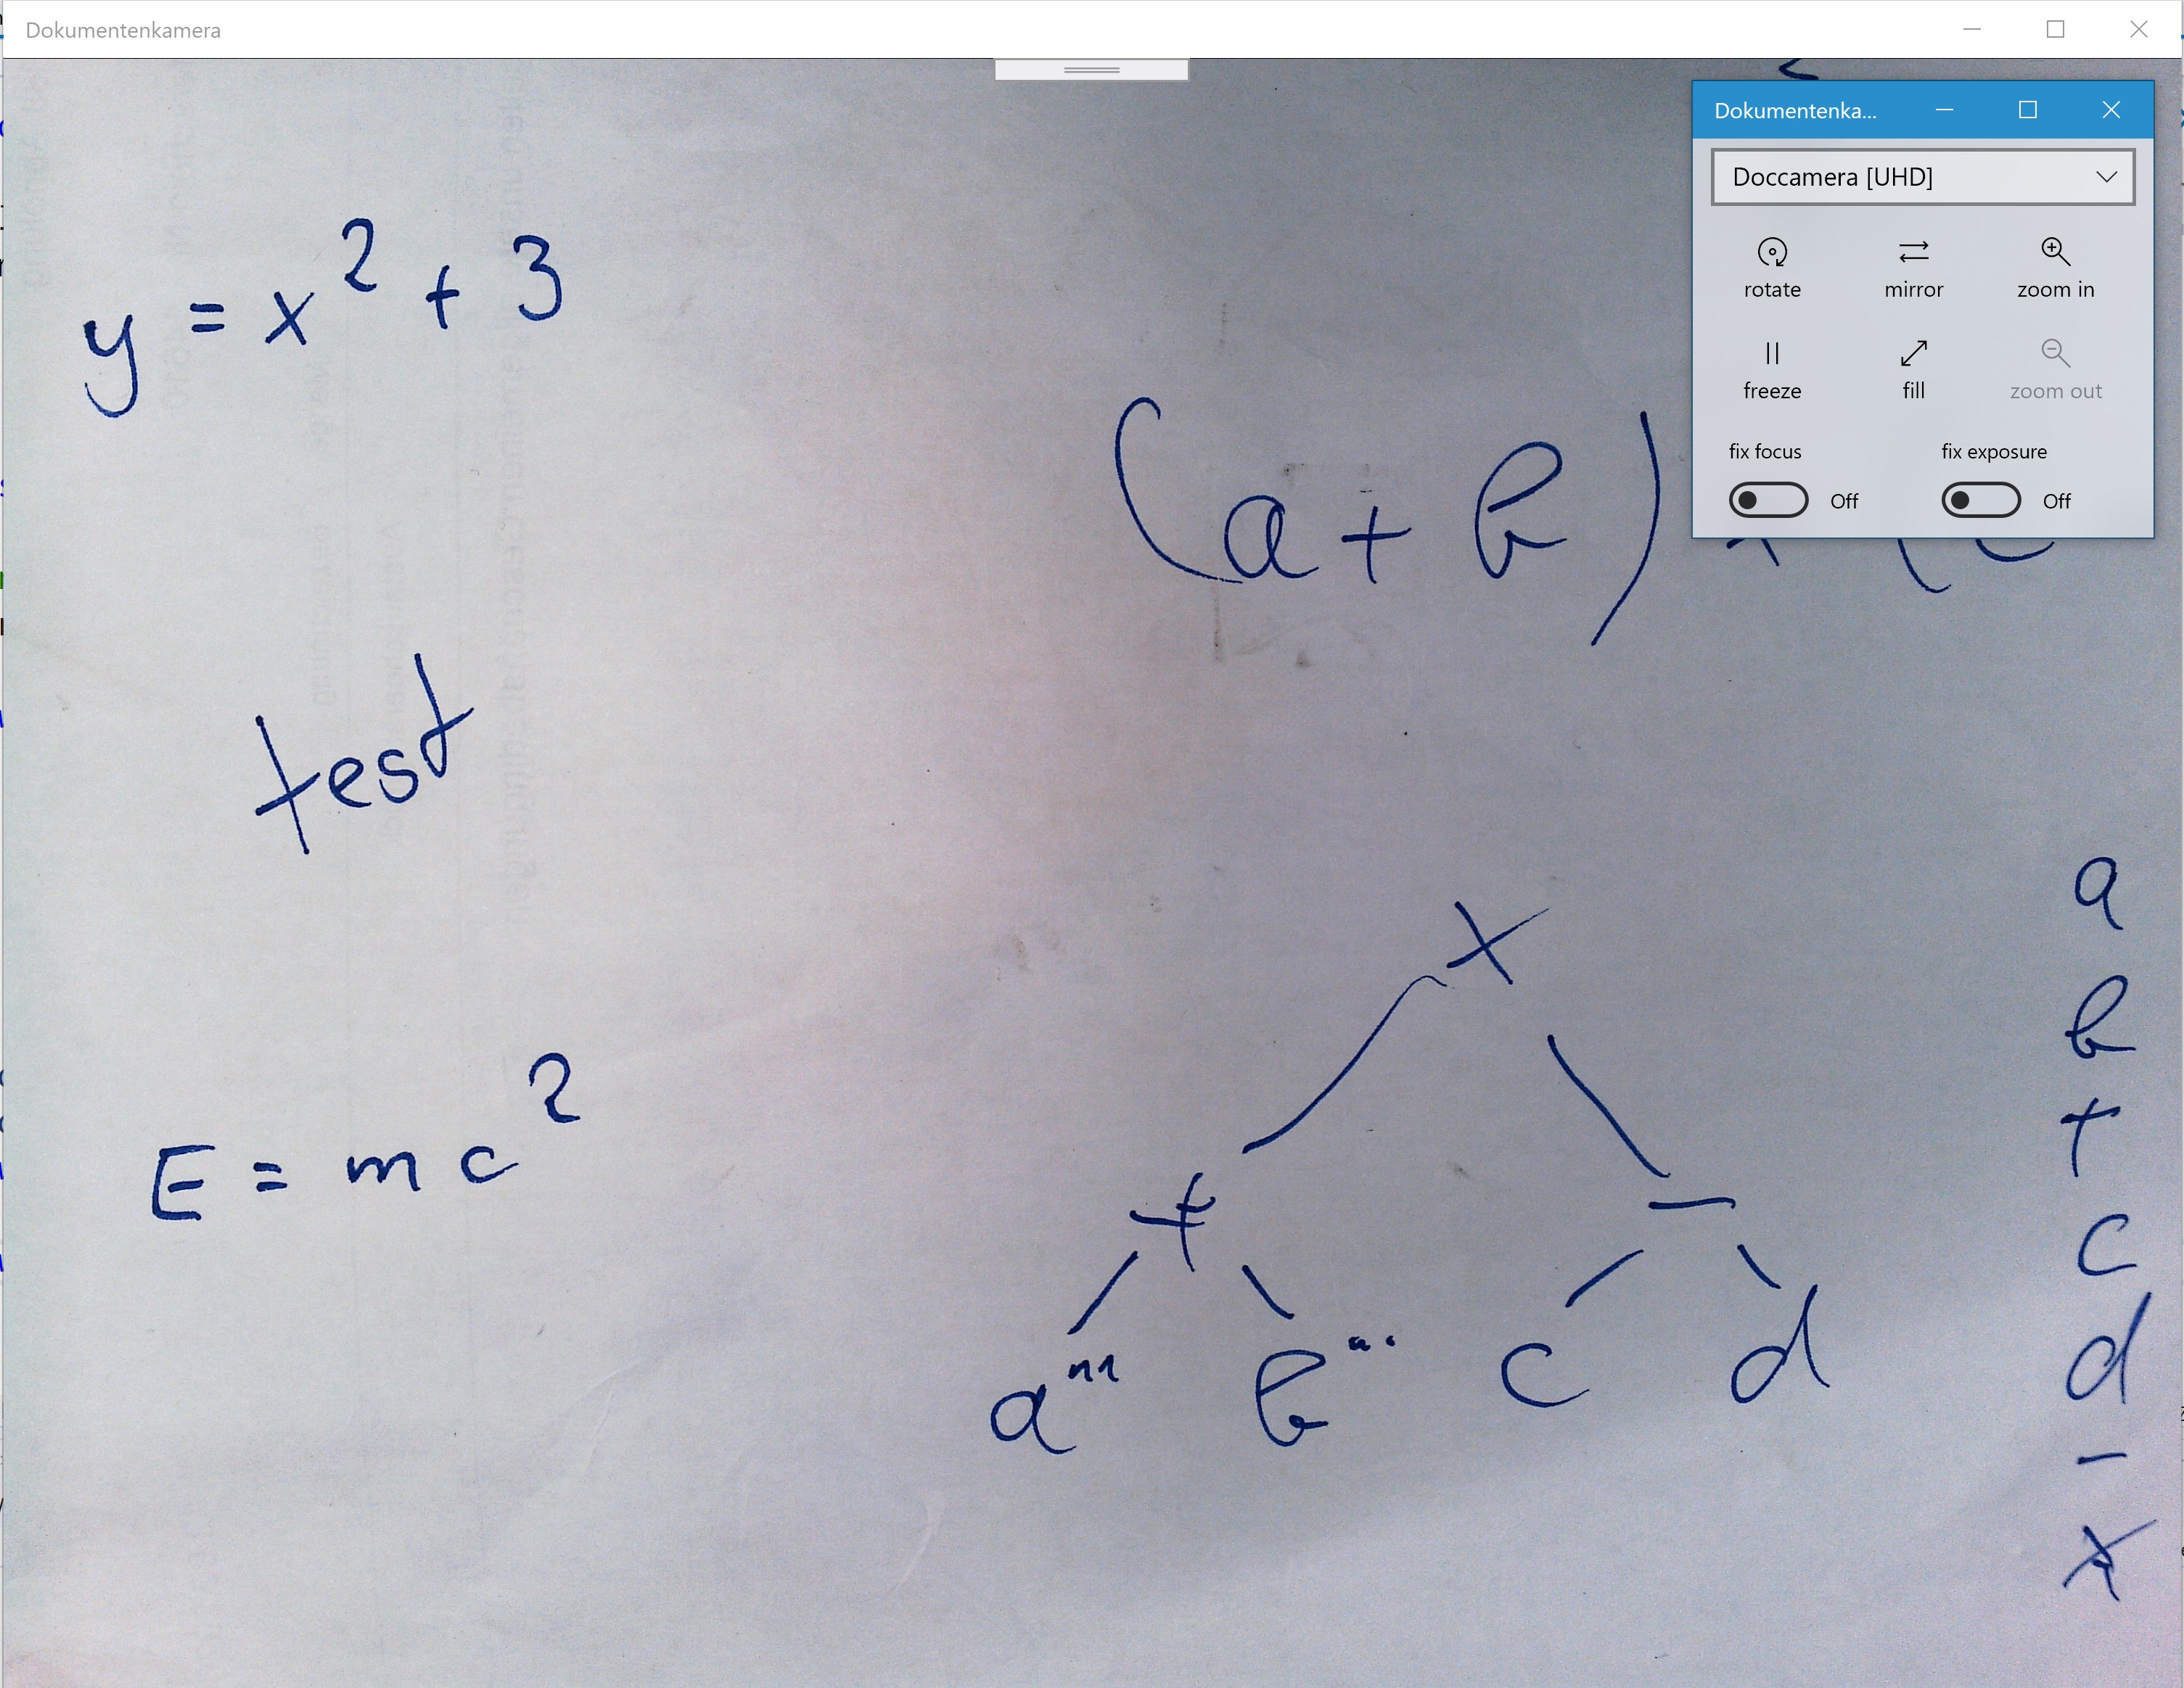 Dokumentenkamera
Dokumentenka...
Doccamera [UHD]
rotate mirror zoom in
freeze fill zoom out
fix focus fix exposure
Off Off
y = x² + 3
(a + b)
test
E = mc²
x
+ −
a b c d
a
b
+
c
d
−
x